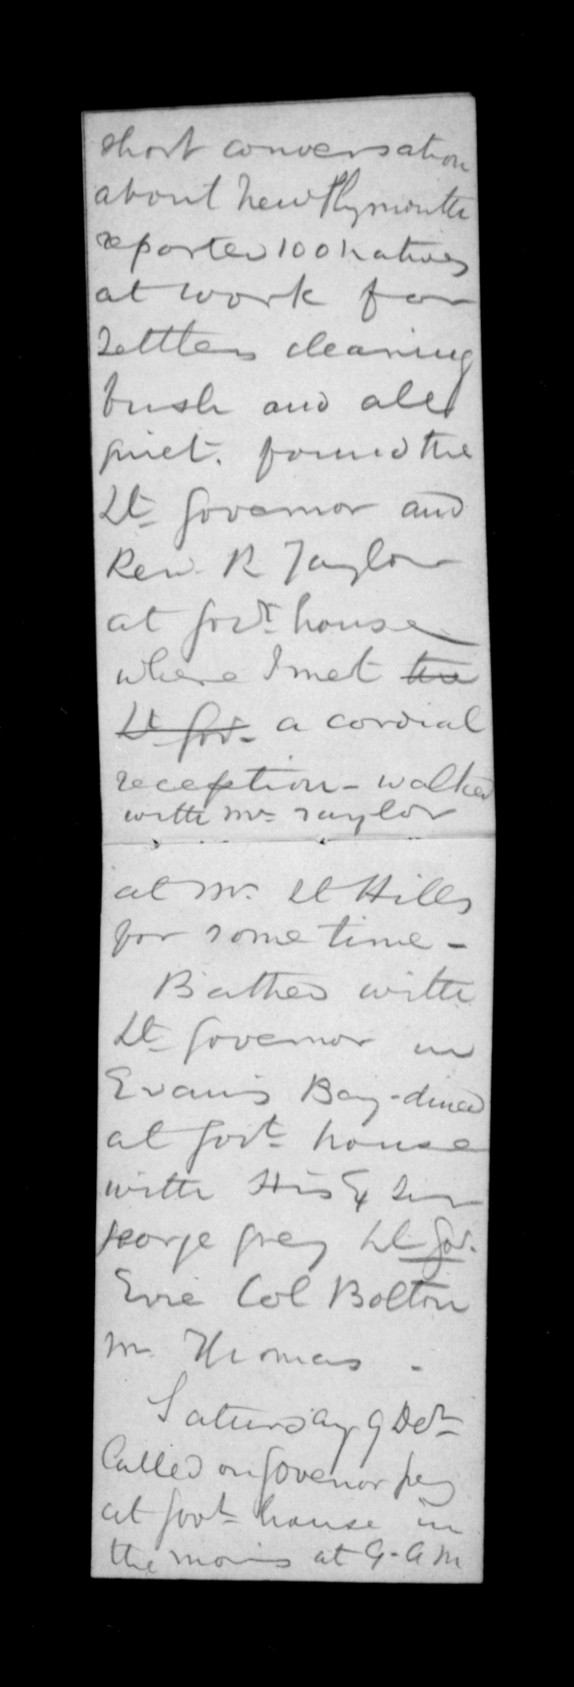 short conversation
about New Plymouth
reported 100 natives
at work for
Settlers clearing
bush and all
quiet. found the
Lt Governor and
Rev. R Taylor
at Govt. house
where I met the
Lt Gov. a cordial
reception - walked
with Mr Taylor
at Mr. St Hills
for some time -
Bathed with
Lt Governor in
Evans Bay - dined
at Govt house
with His Ex Sir
George Grey Lt Gov.
Eyre Col Bolton
Mr Thomas -
Saturday 9 Decr
Called on Govenor Grey
at Govt house in
the morng at 9 - A M